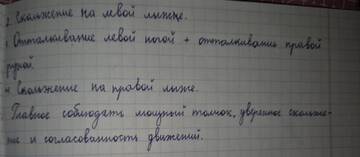 2. Скольжение на левой лыже.
3. Отталкивание левой ногой + отталкивание правой
рукой.
4. Скольжение на правой лыже.
Главное соблюдать мощный толчок, уверенное скольже-
ние и согласованность движений.